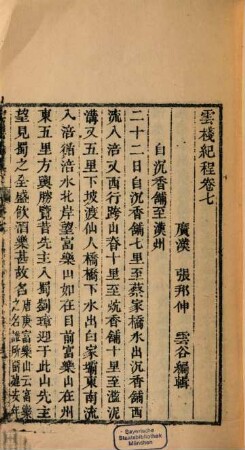 雲棧紀程卷七
廣漢 張邦伸 雲谷編輯
自沉香鋪至漢州
二十二日自沉香鋪七里至蔡家橋水出沉香鋪西
流入涪又西行跨山脊十里至炕香鋪十里至濫泥
溝又五里下坡渡仙人橋橋下水出白家壩東南流
入涪循涪水北岸望富樂山如在目前富樂山在州
東五里方輿勝覽昔先主入蜀劉璋迎于此山先主
望見蜀之全盛飲酒樂甚故名唐庚富樂山云富樂
之名誰所留建安年
Bayerische
Staatsbibliothek
München